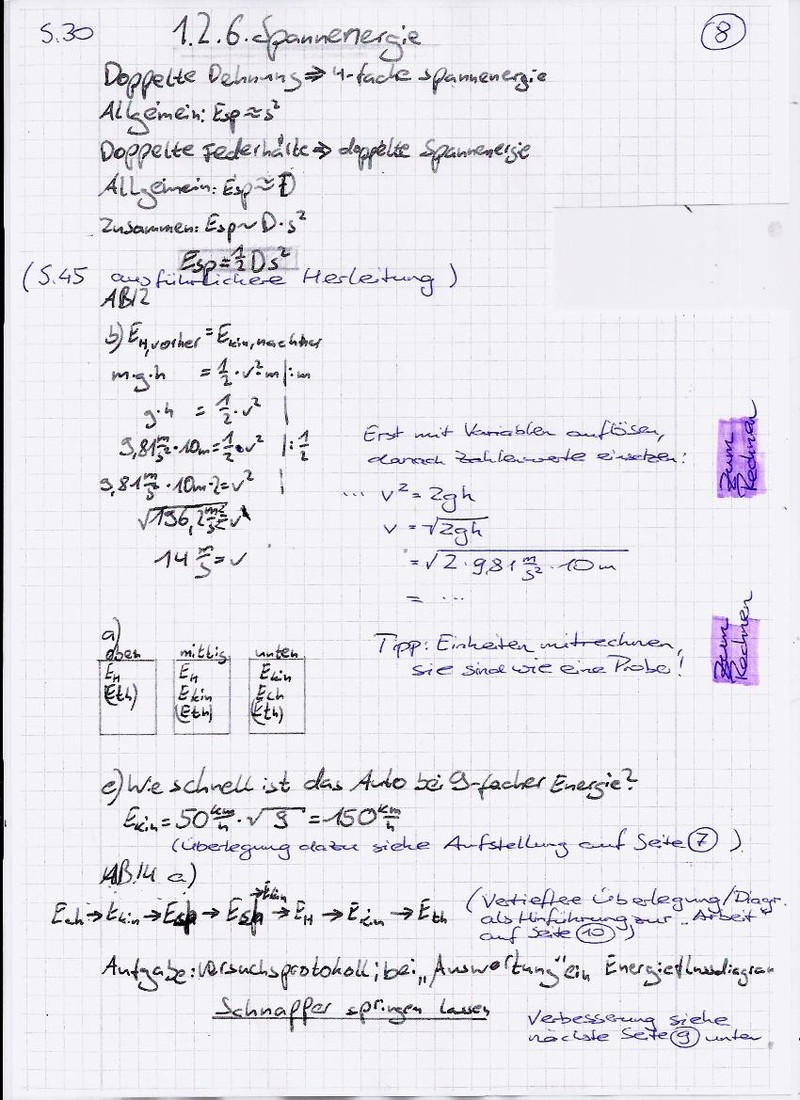 S.30 1.2.6. Spannenergie 8
Doppelte Dehnung ⇒ 4-fache Spannenergie
Allgemein: Esp ≈ s²
Doppelte Federhärte ⇒ doppelte Spannenergie
Allgemein: Esp ≈ D
Zusammen: Esp ~ D·s²
Esp = 1/2 Ds²
(S.45 ausführlichere Herleitung)
AB12
b) E_H,vorher = E_kin,nachher
m·g·h = 1/2 · v²·m |:m
g·h = 1/2 · v² |
9,81 m/s² · 10m = 1/2 · v² |: 1/2
9,81 m/s · 10m·2 = v² |
√196,2 m²/s² = v
14 m/s = v
Erst mit Variablen auflösen,
danach Zahlenwerte einsetzen!
... v² = 2gh
v = √2gh
= √2 · 9,81 m/s² · 10m
= ...
Zum
Rechnen
Tipp: Einheiten mitrechnen,
sie sind wie eine Probe!
Zum
Rechnen
a)
oben mittig unten
E_H E_H Ekin
(Eth) Ekin Ech
(Eth) (Eth)
e) Wie schnell ist das Auto bei 9-facher Energie?
Ekin = 50 km/h · √9 = 150 km/h
(Überlegung dazu siehe Aufstellung auf Seite 7)
AB14 a)
→Ekin
Ech → Ekin → Esp → Esp → E_H → Ekin → Eth
(Vertiefte Überlegung/Diagr.
als Hinführung zur „Arbeit"
auf Seite 10)
Aufgabe: Versuchsprotokoll; bei „Auswertung" ein Energieflussdiagram
Schnapper springen lassen
Verbesserung siehe
nächste Seite 9 unten